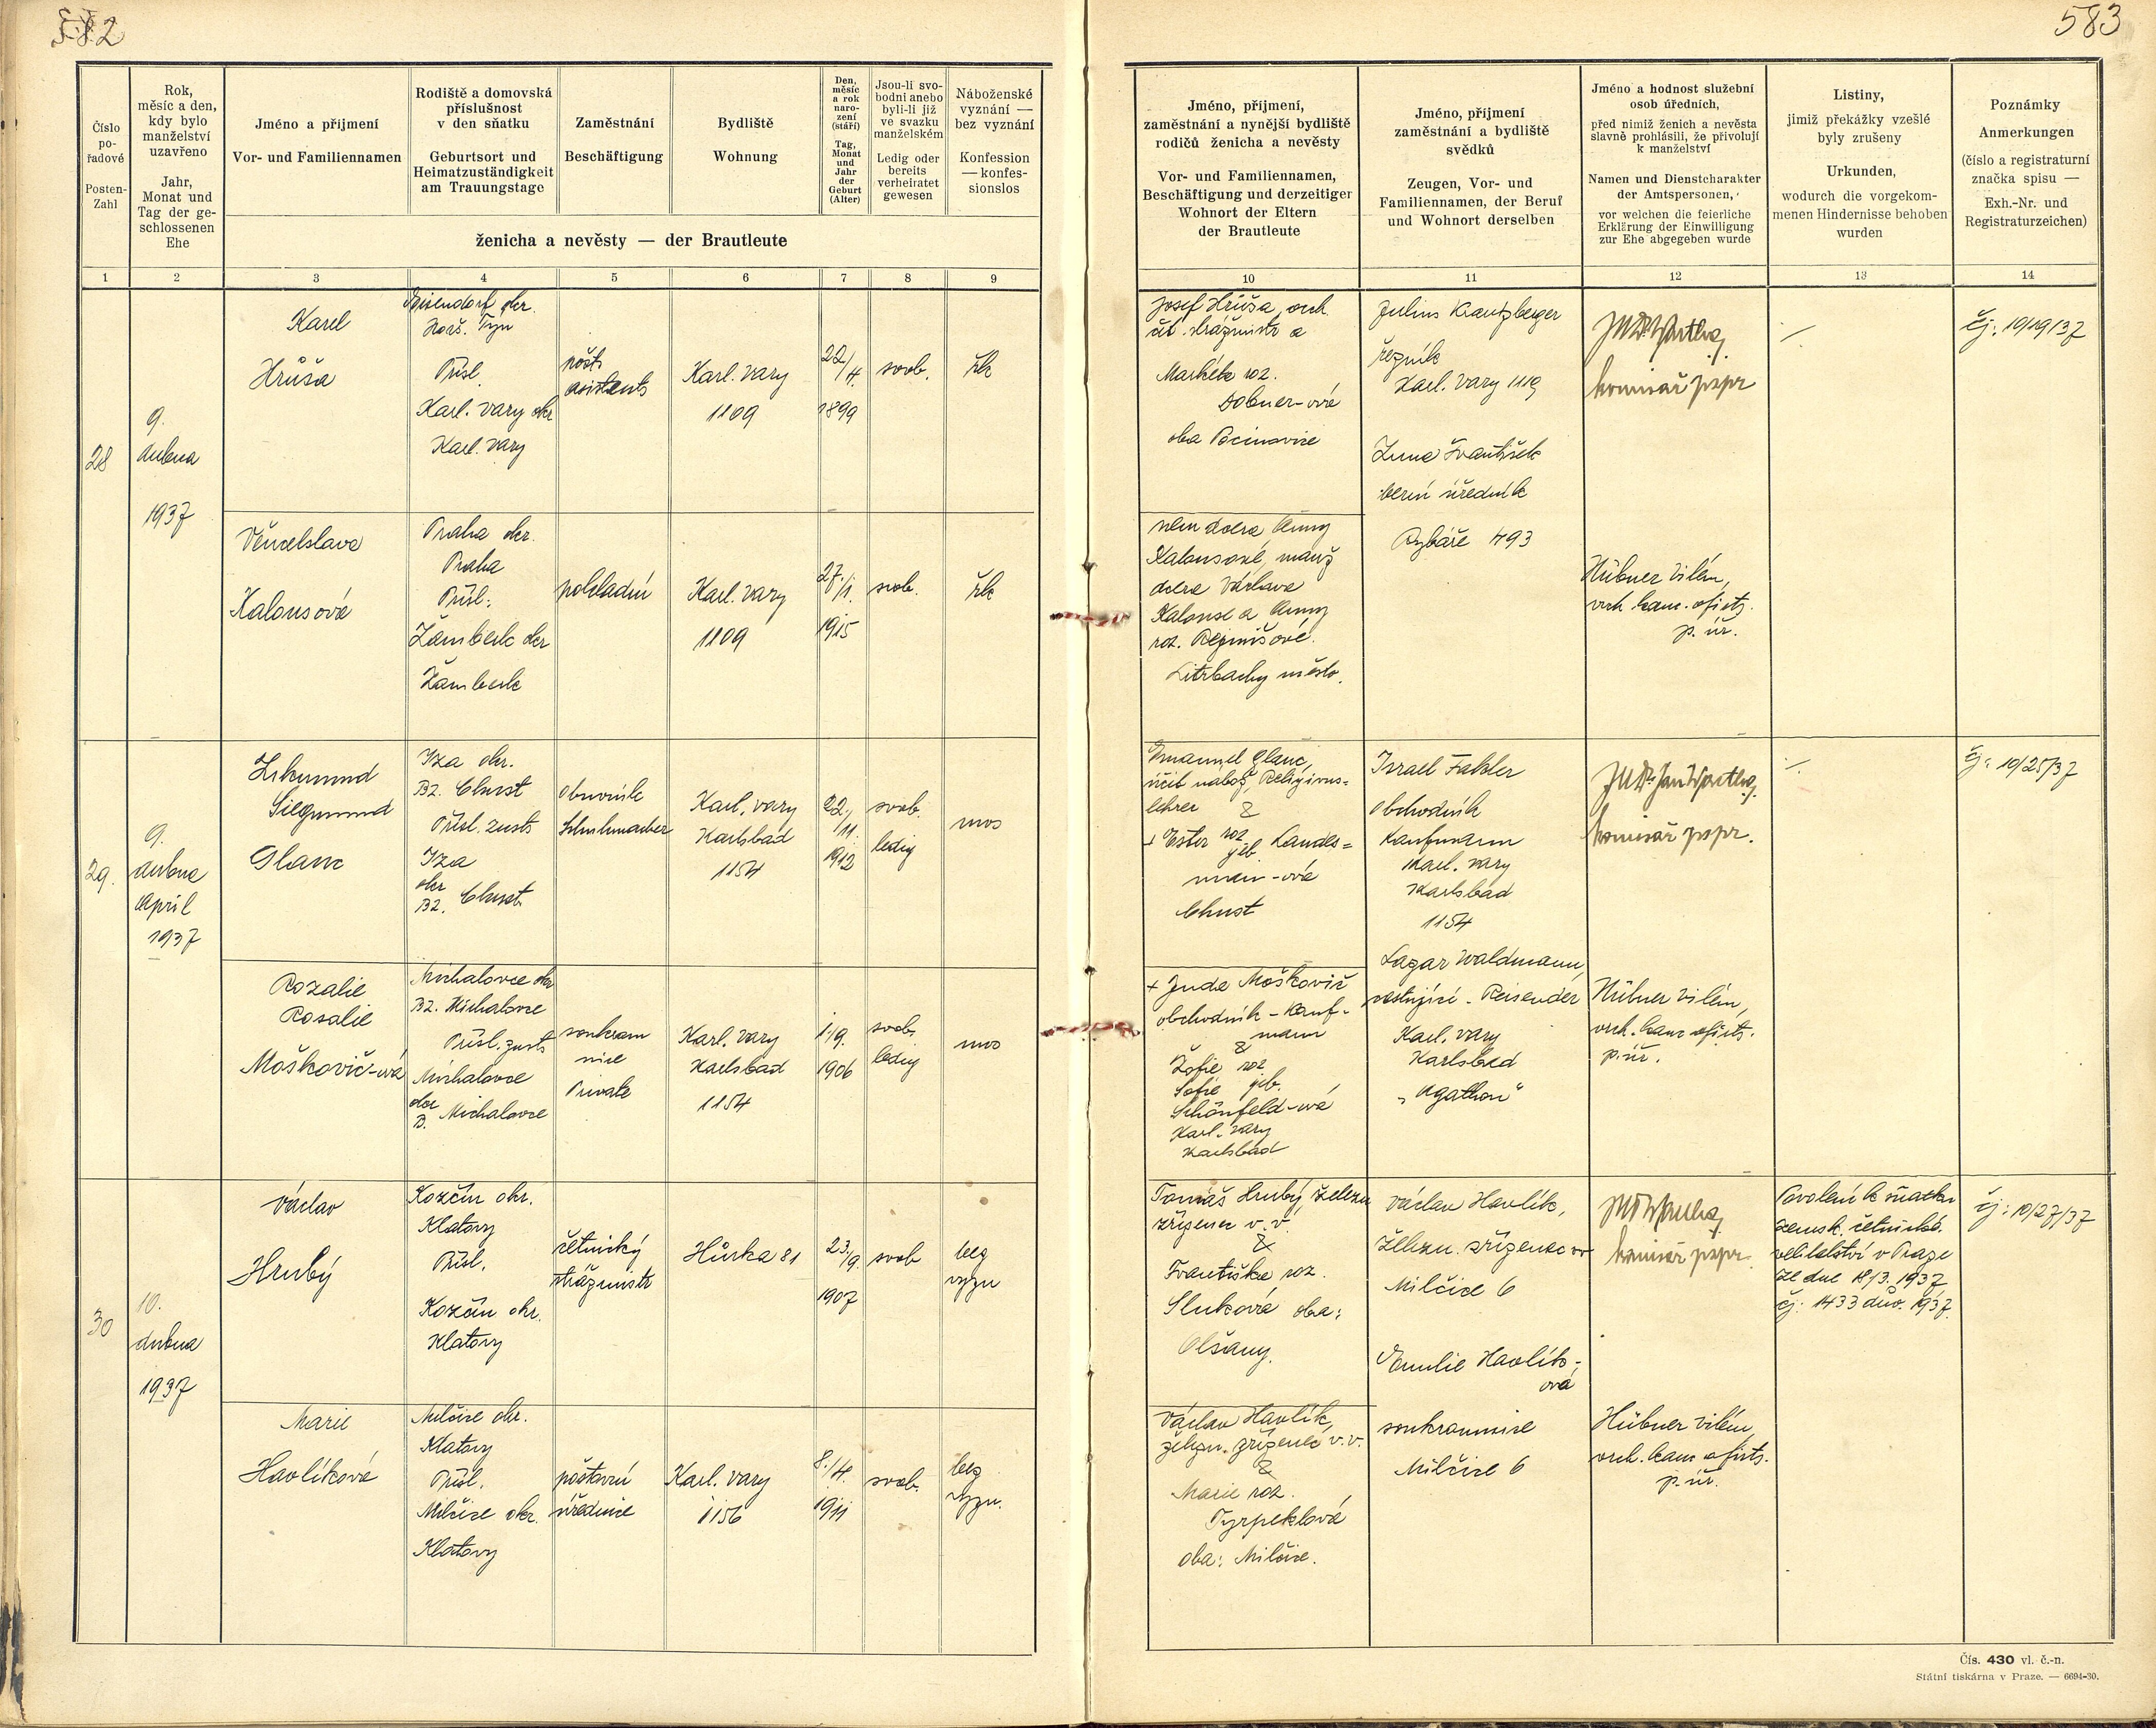 582
583
Číslo po-řadové
Posten-Zahl
Rok, měsíc a den, kdy bylo manželství uzavřeno
Jahr, Monat und Tag der ge-schlossenen Ehe
Jméno a přijmení
Vor- und Familiennamen
Rodiště a domovská příslušnost v den sňatku
Geburtsort und Heimatzuständigkeit am Trauungstage
Zaměstnání
Beschäftigung
Bydliště
Wohnung
Den, měsíc a rok naro-zení (stáří)
Tag, Monat und Jahr der Geburt (Alter)
Jsou-li svo-bodni anebo byli-li již ve svazku manželském
Ledig oder bereits verheiratet gewesen
Náboženské vyznání — bez vyznání
Konfession — konfes-sionslos
ženicha a nevěsty — der Brautleute
Jméno, příjmení, zaměstnání a nynější bydliště rodičů ženicha a nevěsty
Vor- und Familiennamen, Beschäftigung und derzeitiger Wohnort der Eltern der Brautleute
Jméno, příjmení zaměstnání a bydliště svědků
Zeugen, Vor- und Familiennamen, der Beruf und Wohnort derselben
Jméno a hodnost služební osob úředních,
před nimiž ženich a nevěsta slavně prohlásili, že přivolují k manželství
Namen und Dienstcharakter der Amtspersonen,
vor welchen die feierliche Erklärung der Einwilligung zur Ehe abgegeben wurde
Listiny,
jimiž překážky vzešlé byly zrušeny
Urkunden,
wodurch die vorgekom-menen Hindernisse behoben wurden
Poznámky
Anmerkungen
(číslo a registraturní značka spisu — Exh.-Nr. und Registraturzeichen)
1 2 3 4 5 6 7 8 9 10 11 12 13 14
28
9.
dubna
1937
Karel
Hrůša
okr.
Horš. Týn
Přísl.
Karl. Vary okr
Karl. Vary
pošt.
asistent
Karl. Vary
1109
22/4.
1899
svob.
řk
Josef Hrůša, vrch.
strážmistr a
Markéta roz.
Dobner-ová
oba
Julius Krautzberger
řezník
Karl. Vary 1119
František
berní úředník
Rybáře 493
komisař pspr
čj: 10/19/37
Věnceslava
Kalousová
Praha okr.
Praha
Přísl:
Žamberk okr
Žamberk
pokladní
Karl. Vary
1109
27./1.
1915
svob.
řk
nem dcera Anny
Kalousové, manž
dcera Václava
Kalouse a Anny
roz.
město.
Hübner Vilém,
vrch. kanc. ofic.
p. úř.
29.
9.
dubna
April
1937
Zikmund
Siegmund
Glanc
Iza okr.
Bz. Chust
Přísl. zust.
Iza
okr
Bz. Chust
Obuvník
Schuhmacher
Karl. Vary
Karlsbad
1154
22./11.
1912
svob.
ledig
mos
Emanuel Glanc,
učit nábož, Religions=
lehrer
&
+ Ester roz geb. Landes=
man-ová
Chust
Israel Fakler
Obchodník
Kaufmann
Karl. Vary
Karlsbad
1154
Lazar Waldmann,
cestující - Reisender
Karl. Vary
Karlsbad
"Agathon"
komisař pspr.
čj: 10/25/37
Rozalie
Rosalie
Moškovič-ová
Michalovce okr
Bz. Michalovce
Přísl. zust
Michalovce
okr
B. Michalovce
soukrom
nice
Private
Karl. Vary
Karlsbad
1154
1./9.
1906
svob.
ledig
mos
+ Juda Moškovič
obchodník - Kauf-
mann
&
Žofie roz
Sofie geb.
Schönfeld-ová
Karl. Vary
Karlsbad
Hübner Vilém,
vrch. kanc ofic.
p. úř.
30
10.
dubna
1937
Václav
Hrubý
Kozčín okr.
Klatovy
Přísl.
Kozčín okr.
Klatovy
četnický
strážmistr
Hůrka 81
23./9.
1907
svob
bez
vyzn
Tomáš Hrubý, železn
zřízenec v. v.
&
Františka roz.
Sluková oba:
Olšany.
Václav Havlík,
železn. zřízenec vv
Milčice 6
Emilie Havlík-
ová
soukromnice
Milčice 6
komisař pspr.
Povolení k sňatku
zemsk. četnické.
velitelství v Praze
ze dne 18/3. 1937
čj: 1433 dův. 1937.
čj: 10/27/37
Marie
Havlíková
Milčice okr.
Klatovy
Přísl.
Milčice okr.
Klatovy
poštovní
úřednice
Karl. Vary
1156
8./4.
1911
svob.
bez
vyzn.
Václav Havlík,
želzn. zřízenec v. v.
&
Marie roz.
Tyrpeklová
oba: Milčice.
Hübner Vilém,
vrch. kanc ofic.
p. úř.
Čís. 430 vl. č.-n.
Státní tiskárna v Praze. — 6694-30.